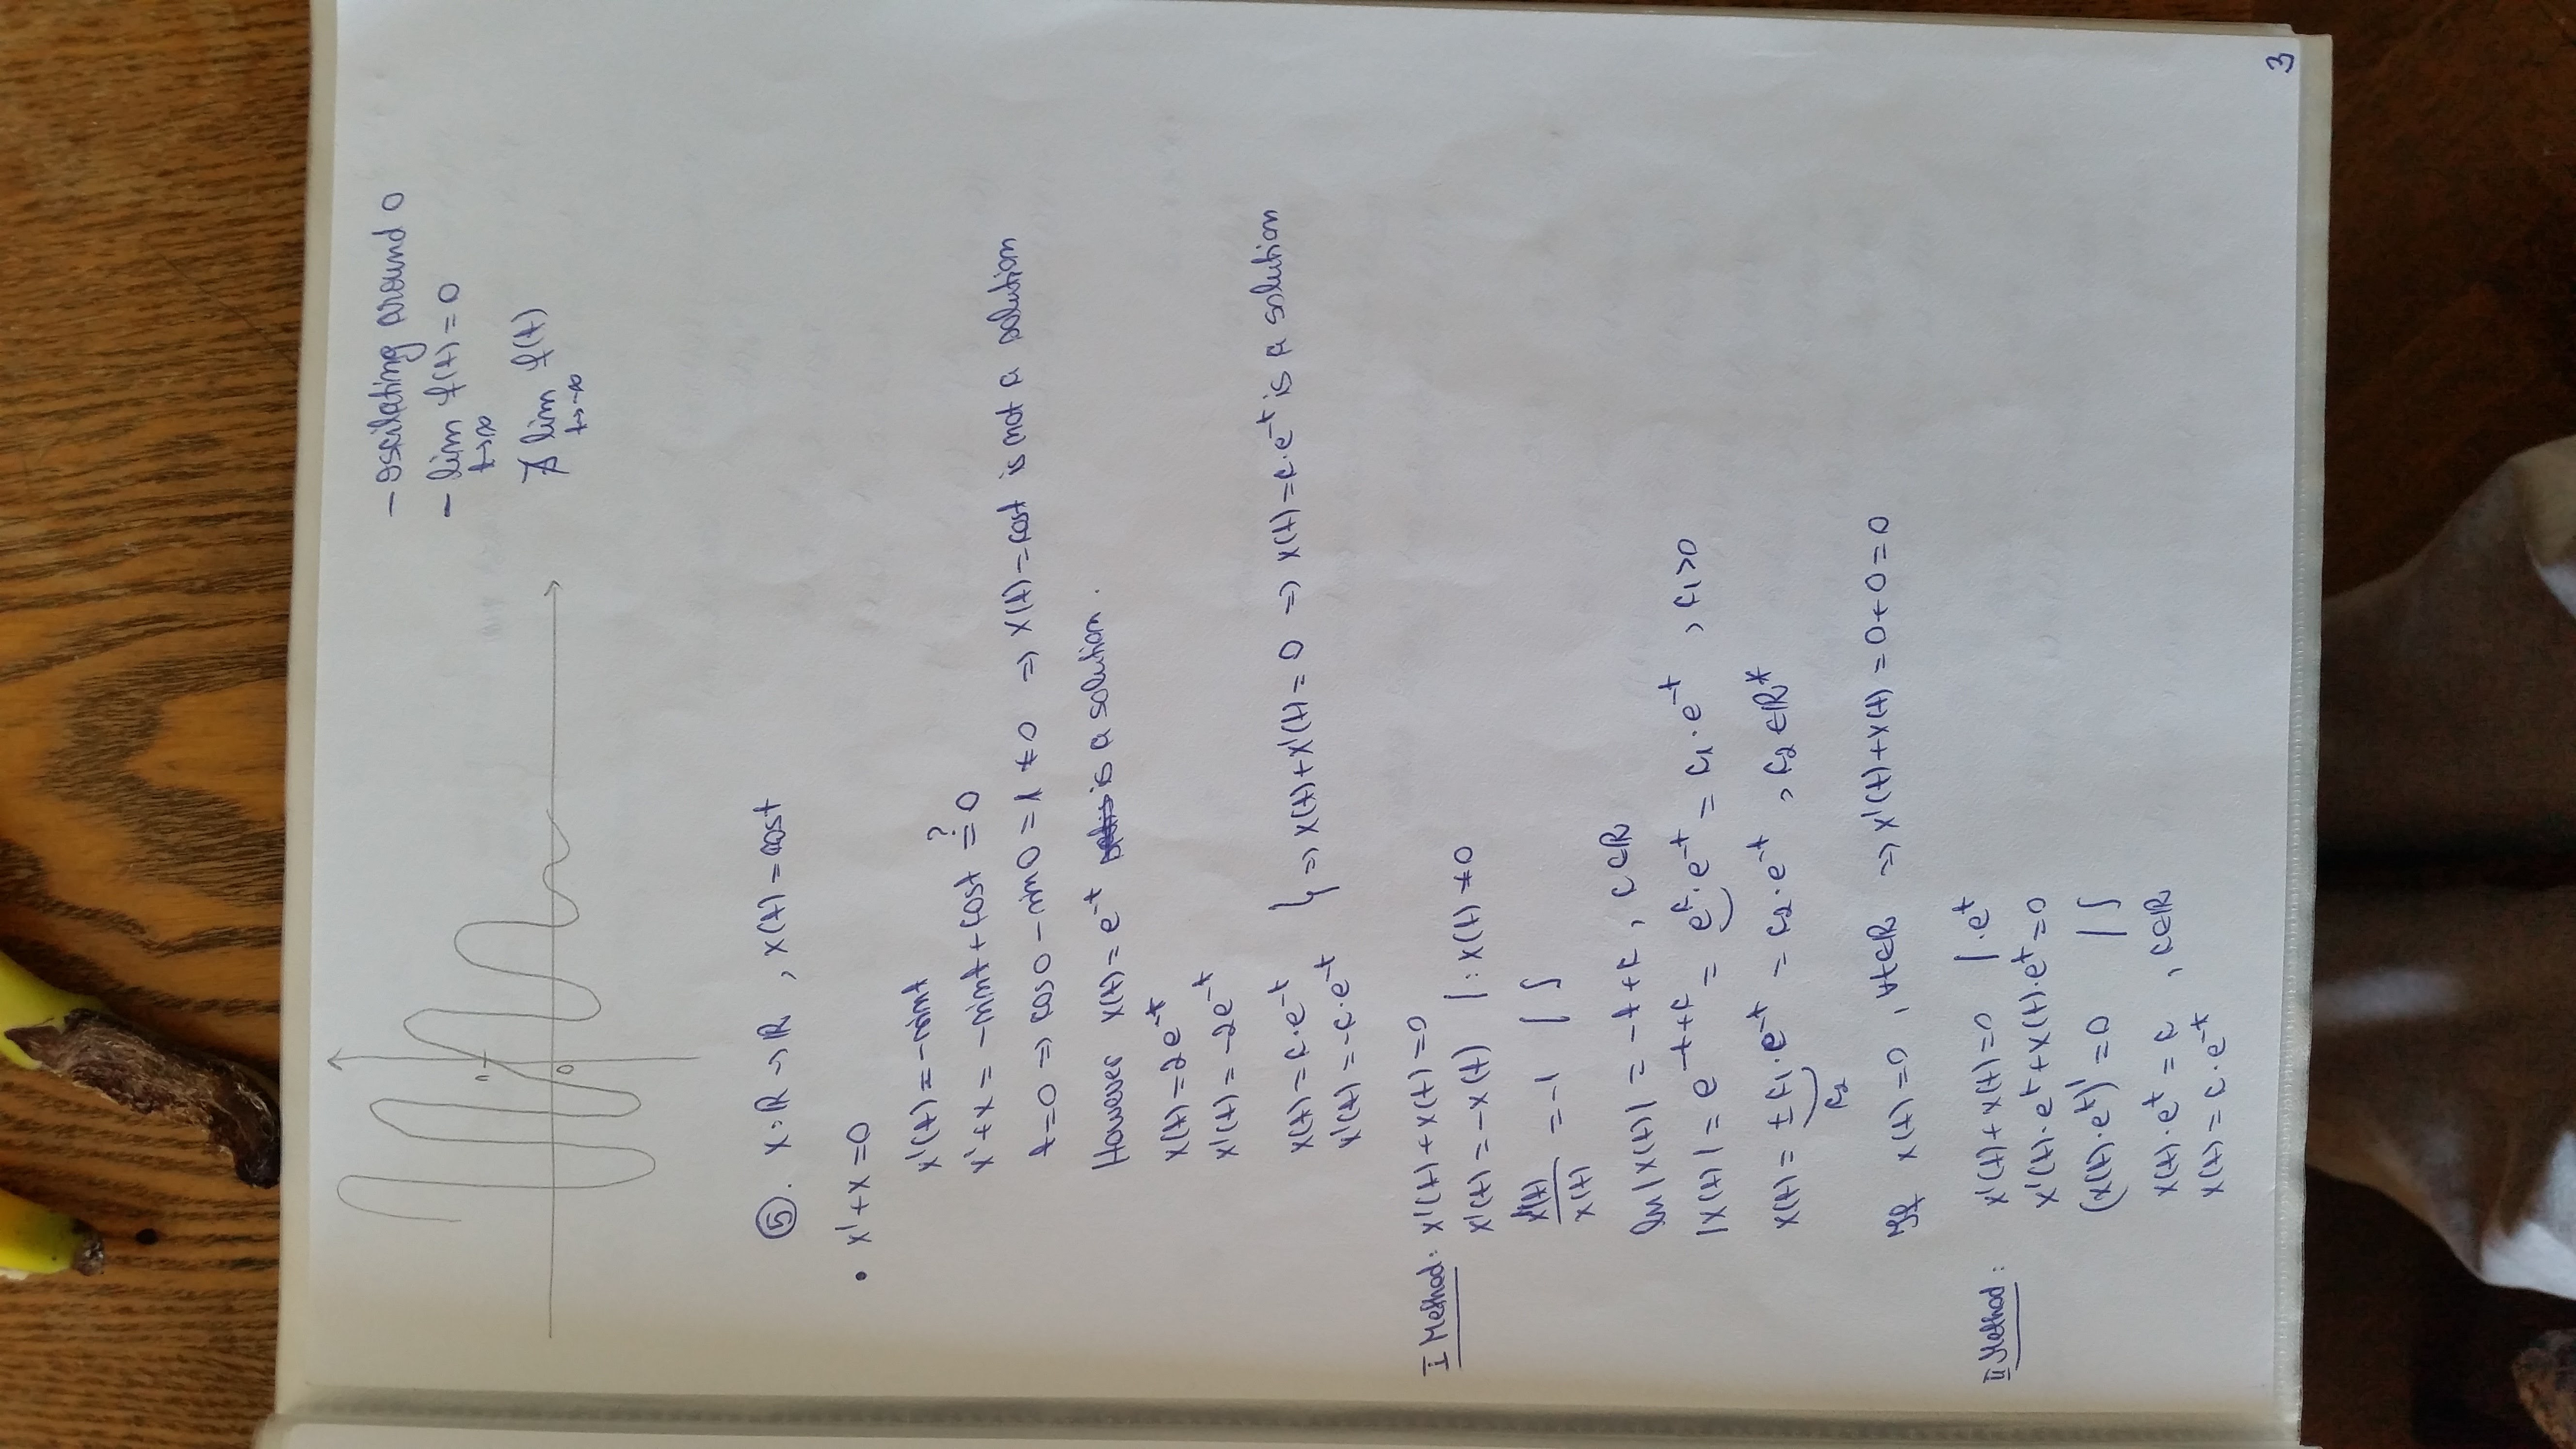 1
0
- oscilating around 0
- lim f(t) = 0
t→∞
∄ lim f(t)
t→-∞
⑤. x: ℝ → ℝ , x(t) = cost
• x' + x = 0
x'(t) = -sint
x' + x = -sint + cost ?= 0
t=0 => cos0 - sin0 = 1 ≠ 0 => x(t) = cost is not a solution
However x(t) = e^-t is a solution.
x(t) = 2e^-t
x'(t) = -2e^-t
x(t) = c·e^-t
x'(t) = -c·e^-t } => x(t) + x'(t) = 0 => x(t) = c·e^-t is a solution
I Method: x'(t) + x(t) = 0
x'(t) = -x(t) | : x(t) ≠ 0
x'(t)/x(t) = -1 | ∫
ln|x(t)| = -t + c, c∈ℝ
|x(t)| = e^(-t+c) = e^c·e^-t = c₁·e^-t , c₁>0
x(t) = ±c₁·e^-t = c₂·e^-t , c₂∈ℝ*
c₂
If x(t) = 0, ∀t∈ℝ => x'(t) + x(t) = 0 + 0 = 0
II Method: x'(t) + x(t) = 0 | ·e^t
x'(t)·e^t + x(t)·e^t = 0
(x(t)·e^t)' = 0 | ∫
x(t)·e^t = c , c∈ℝ
x(t) = c·e^-t
3